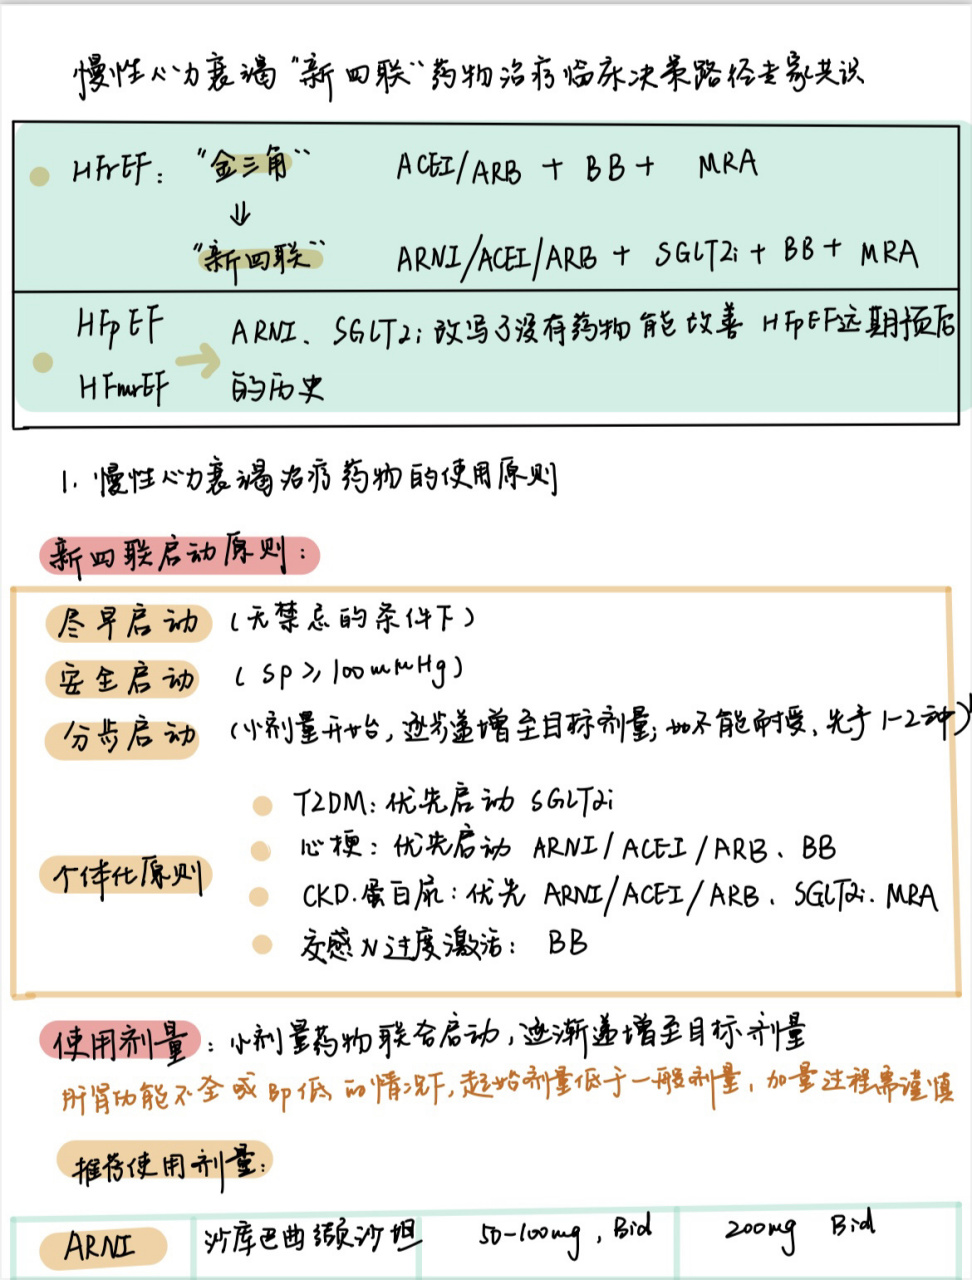 慢性心力衰竭“新四联”药物治疗临床决策路径专家共识
HFrEF: “金三角” ACEI/ARB + BB + MRA
⇓
“新四联” ARNI/ACEI/ARB + SGLT2i + BB + MRA
HFpEF ARNI、SGLT2i改写了没有药物能改善 HFpEF远期预后
HFmrEF → 的历史
1. 慢性心力衰竭治疗药物的使用原则
新四联启动原则:
尽早启动 (无禁忌的条件下)
安全启动 (SP≥100mmHg)
分步启动 (小剂量开始, 逐步递增至目标剂量; 如不能耐受, 先予1-2种)
T2DM: 优先启动 SGLT2i
心梗: 优先启动 ARNI/ACEI/ARB、BB
个体化原则
CKD.蛋白尿: 优先 ARNI/ACEI/ARB、SGLT2i、MRA
交感N过度激活: BB
使用剂量: 小剂量药物联合启动, 逐渐递增至目标剂量
肝肾功能不全或BP低的情况下, 起始剂量低于一般剂量, 加量过程需谨慎
推荐使用剂量:
ARNI 沙库巴曲缬沙坦 50-100mg, Bid 200mg Bid